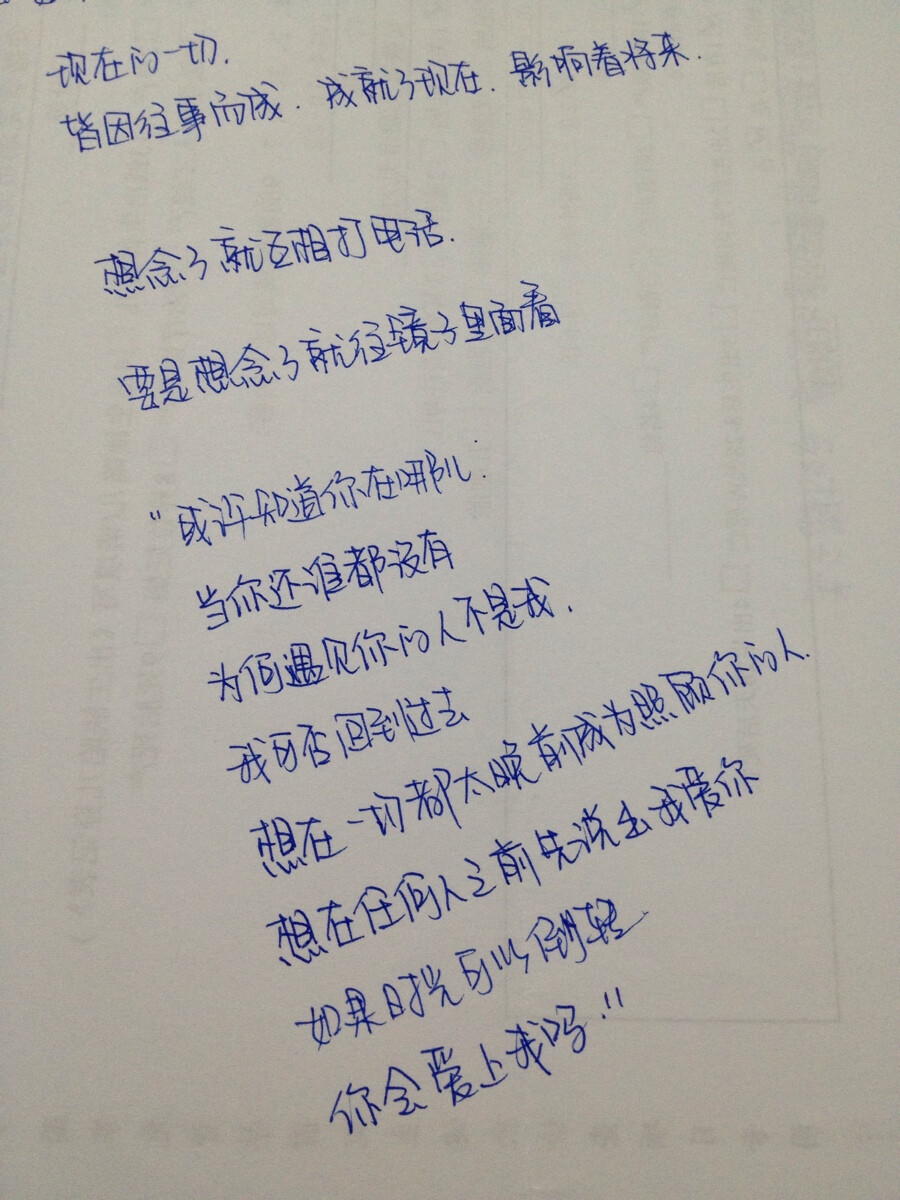 现在的一切.
皆因往事而成. 成就了现在. 影响着将来.
想念了就互相打电话.
要是想念了就往镜子里面看
"或许知道你在哪儿.
当你还谁都没有
为何遇见你的人不是我.
我可否回到过去
想在一切都太晚前成为照顾你的人.
想在任何人之前先说出我爱你
如果时光可以倒转
你会爱上我吗."